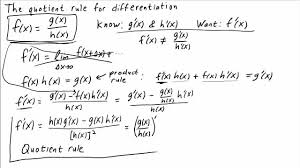 The quotient rule for differentiation
f(x) = g(x)/h(x) Know: g'(x) & h'(x) Want: f'(x)
f'(x) ≠ g'(x)/h'(x)
f'(x) = lim Δx→0 f(x+Δx)-
f(x) h(x) = g(x) product rule: f'(x) h(x) + f(x) h'(x) = g'(x)
f'(x) = g'(x) - f(x) h'(x) / h(x) = g'(x) - g(x)/h(x) h'(x) / h(x)
f'(x) = h(x) g'(x) - g(x) h'(x) / [h(x)]² = (g(x)/h(x))'
Quotient rule